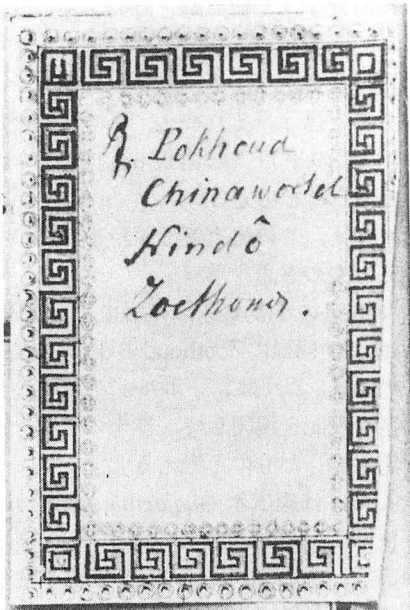 ℞ Pokhoud
Chinawortel
Hindô
Zoethout.